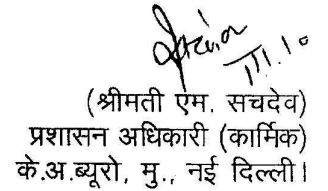 (श्रीमती एम. सचदेव)
प्रशासन अधिकारी (कार्मिक)
के.अ.ब्यूरो, मु., नई दिल्ली।